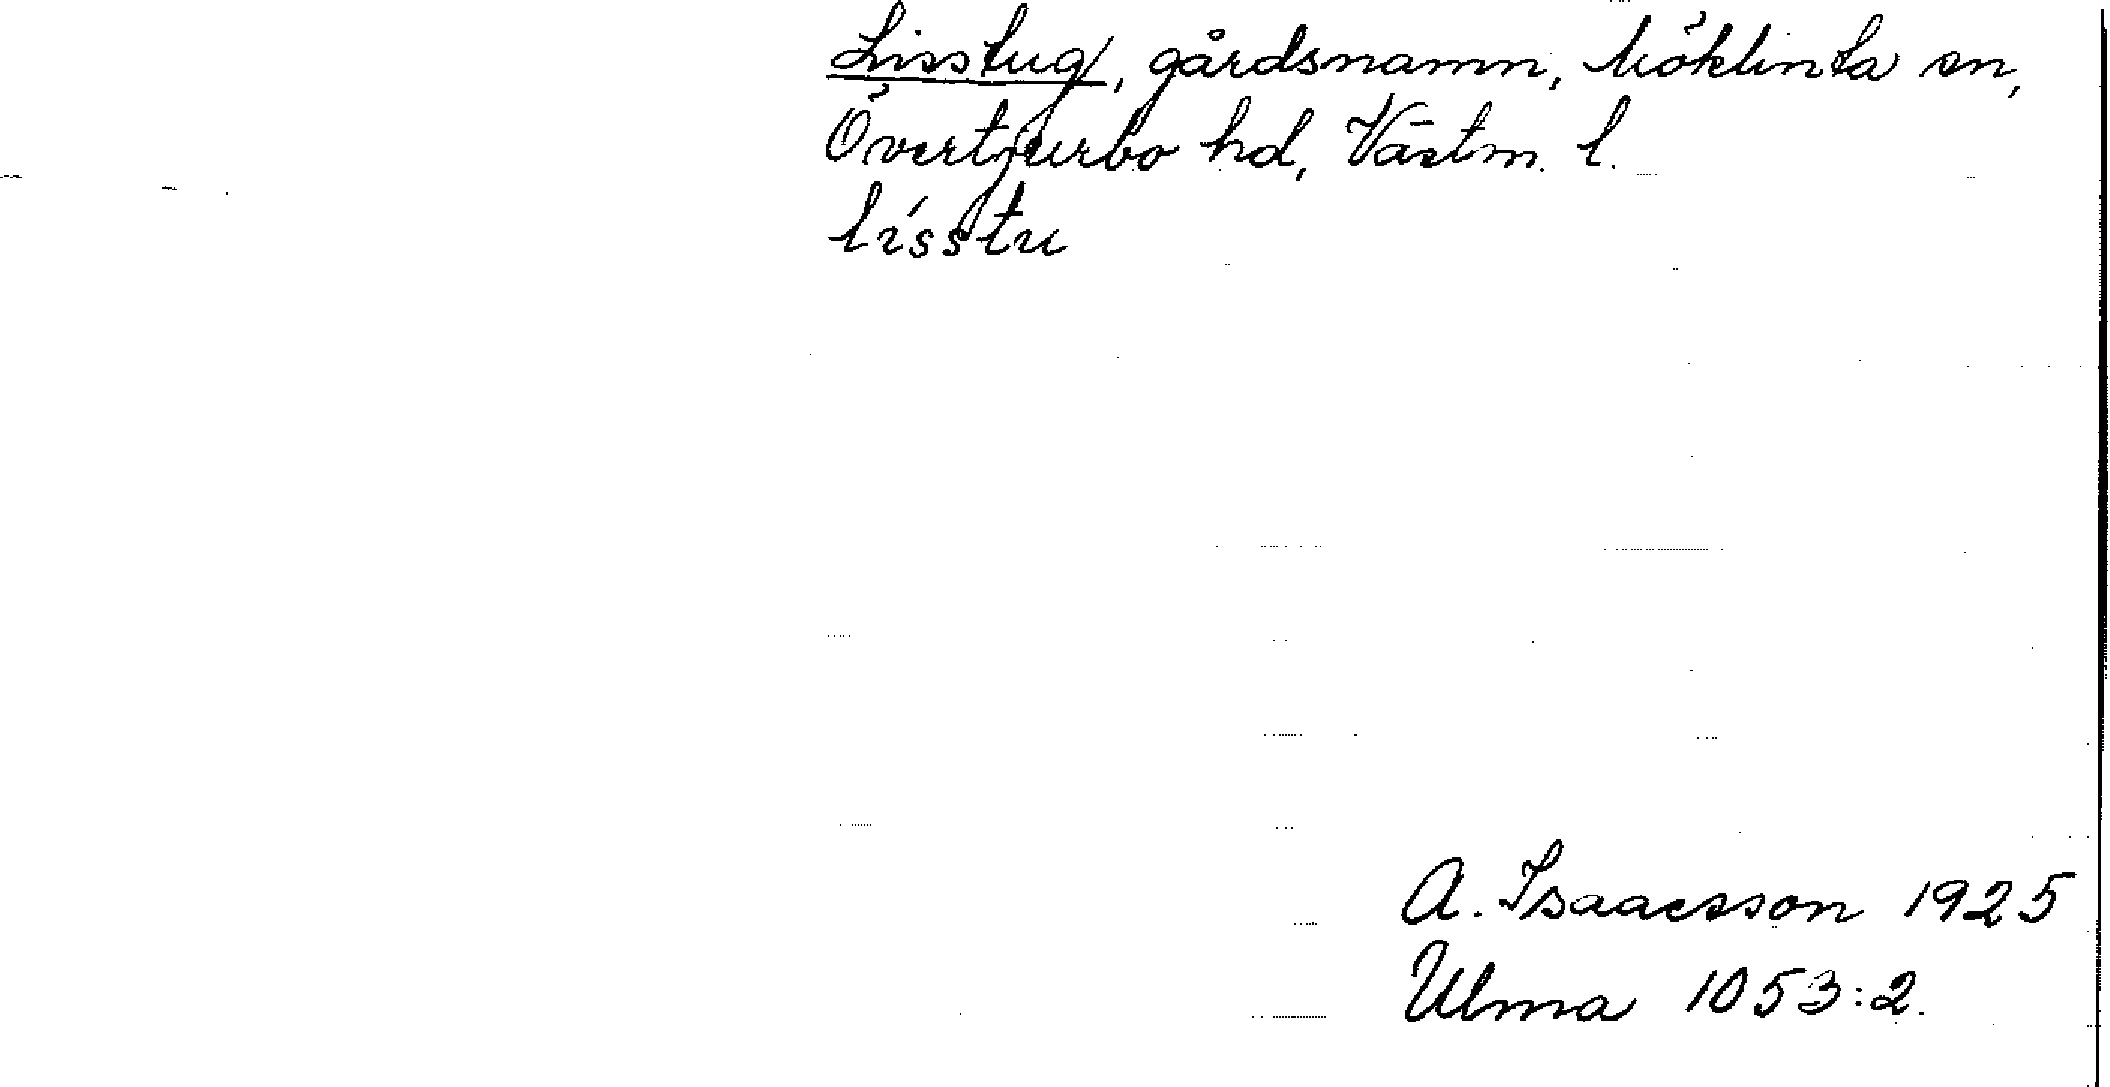 Lisstug, gårdsnamn, Möklinta sn,
Övertjurbo hd, Västm. l.
lísstu
A. Isaacsson 1925
Ulma 1053:2.